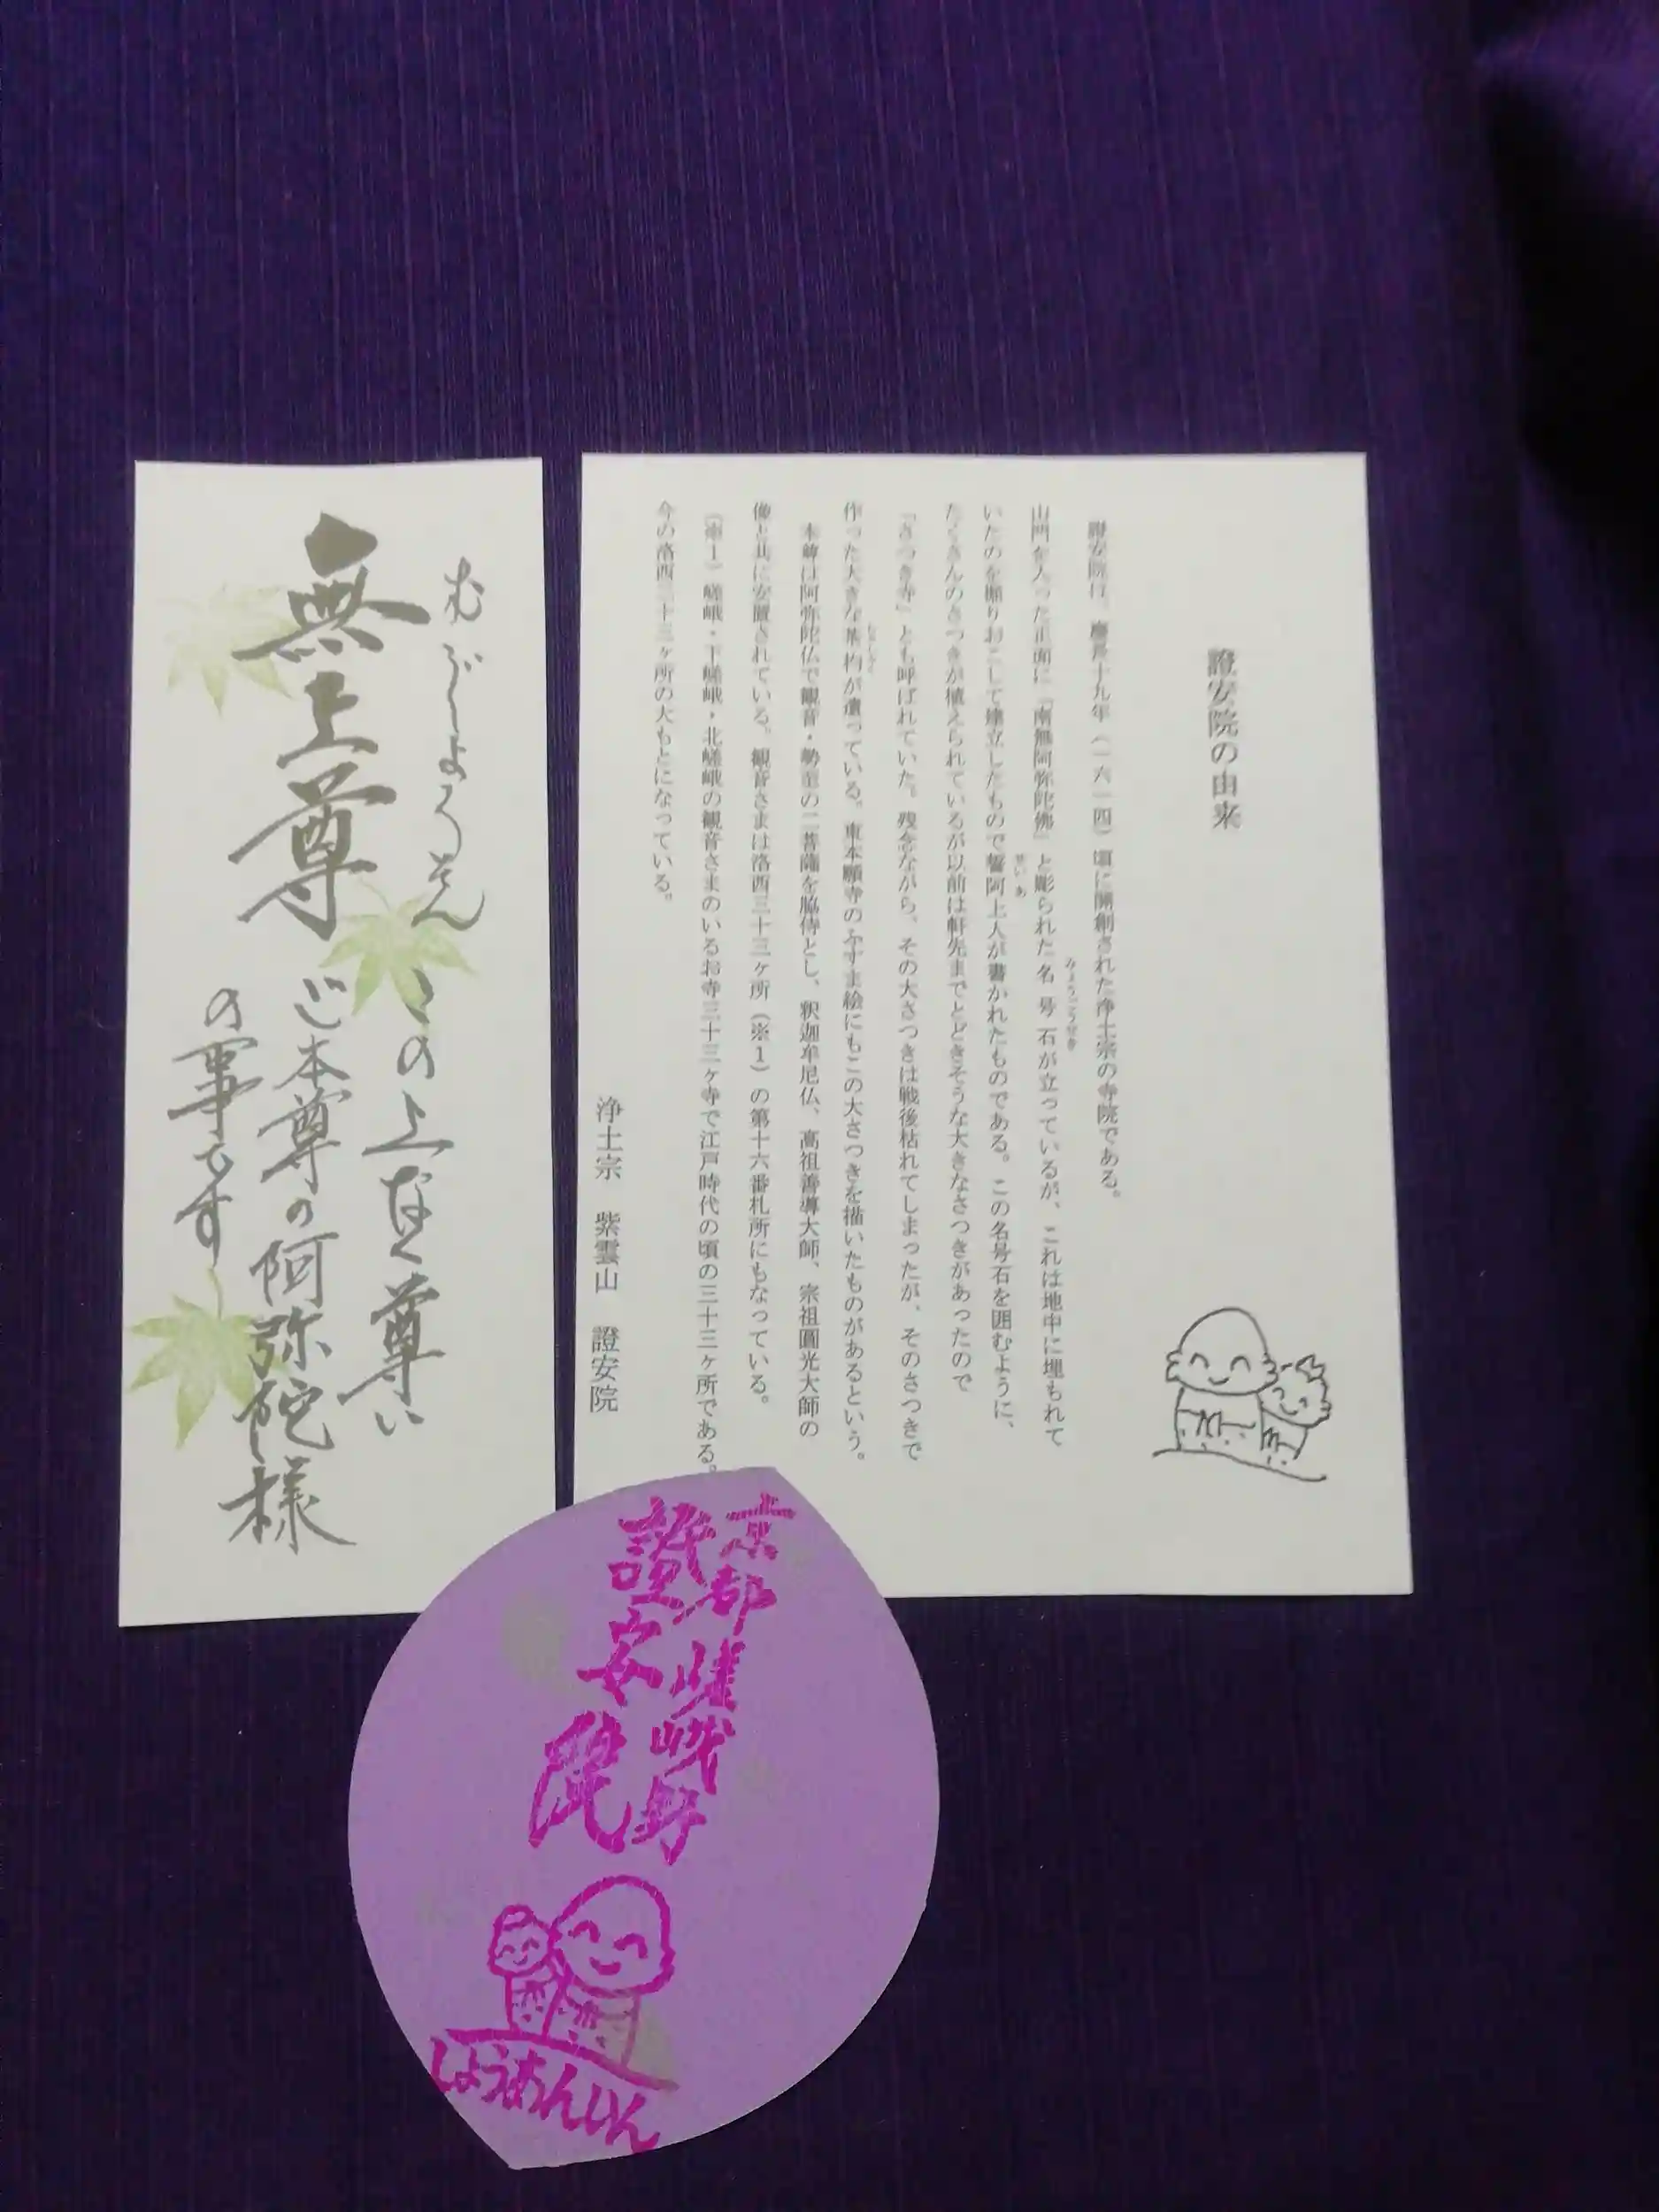 證安院の由来
證安院は、慶長十九年（一六一四）頃に開創された浄土宗の寺院である。
山門を入った正面に「南無阿弥陀佛」と彫られた名号石が立っているが、これは地中に埋もれて
みょうごうせき
いたのを掘りおこして建立したもので誓阿上人が書かれたものである。この名号石を囲むように、
せいあ
たくさんのさつきが植えられているが以前は軒先までとどきそうな大きなさつきがあったので
「さつき寺」とも呼ばれていた。残念ながら、その大さつきは戦後枯れてしまったが、そのさつきで
作った大きな茶杓が遺っている。東本願寺のふすま絵にもこの大さつきを描いたものがあるという。
本尊は阿弥陀仏で観音・勢至の二菩薩を脇侍とし、釈迦牟尼仏、高祖善導大師、宗祖圓光大師の
像と共に安置されている。観音さまは洛西三十三ヶ所（※1）の第十六番札所にもなっている。
（※1）嵯峨・下嵯峨・北嵯峨の観音さまのいるお寺三十三ヶ寺で江戸時代の頃の三十三ヶ所である。
今の洛西三十三ヶ所の大もとになっている。
浄土宗 紫雲山 證安院
むじょうそん
無上尊
この上なく尊い
ご本尊の阿弥陀様
の事です
京都嵯峨野
證安院
しょうあんいん